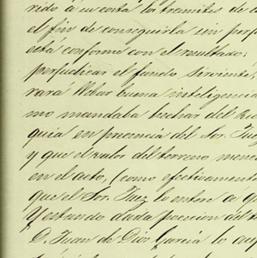 rido á su costa los tramites de
el fin de conseguirla sin perj
está conforme con el resultado;
perjudicar el fundo sirviente,
rará buena inteligencia
mo mandaba techar del
quia en presencia del Sor. Juez
y que el valor del terreno
en el acto, (como efectivamente
que el Sor. Juez lo entera á
Y estando dada posecion del
D. Juan de Dios García lo